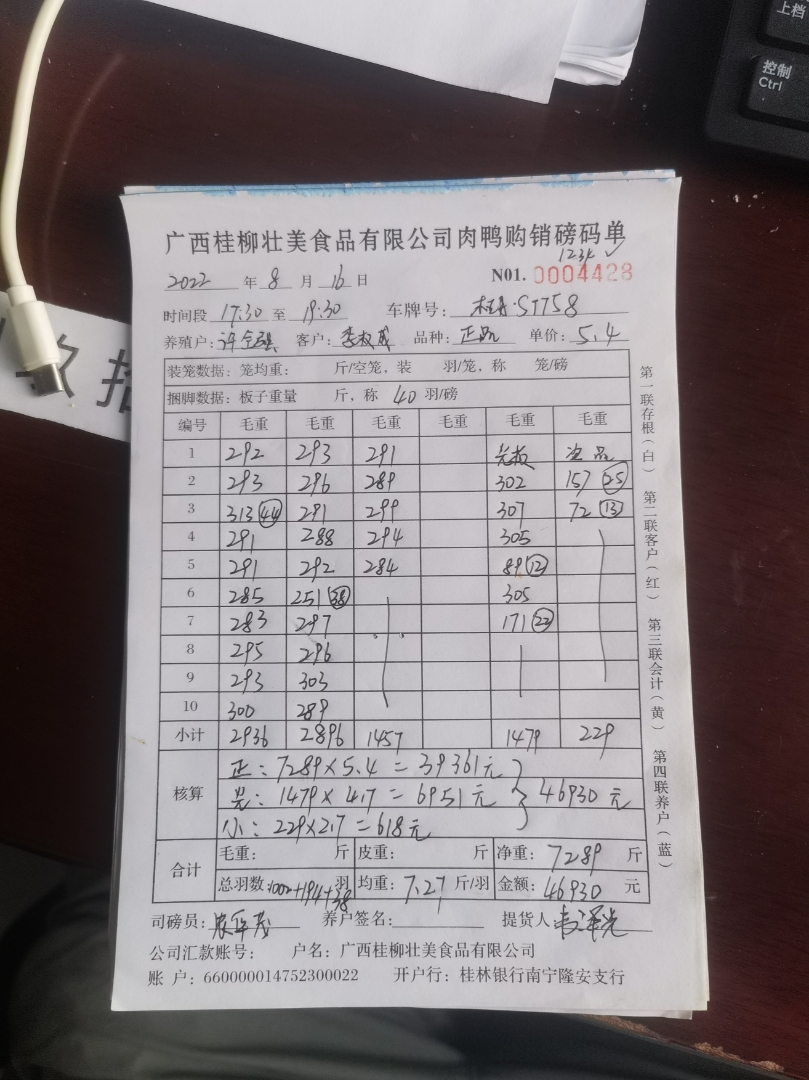 上档
控制
Ctrl
广西桂柳壮美食品有限公司肉鸭购销磅码单
1234 ✓
2022 年 8 月 16 日 N01. 0004428
时间段 17:30 至 19:30 车牌号: ST758
养殖户: 许 客户: 李权成 品种: 正品 单价: 5.4
装笼数据: 笼均重: 斤/空笼, 装 羽/笼, 称 笼/磅
捆脚数据: 板子重量 斤, 称 40 羽/磅
编号 毛重 毛重 毛重 毛重 毛重 毛重
1 292 293 291 光板 次品
2 293 296 289 302 157 (25)
3 313 (44) 291 299 307 72 (13)
4 291 288 294 305
5 291 292 284 89 (12)
6 285 251 (38) 305
7 283 297 171 (22)
8 295 296
9 293 303
10 300 289
小计 2936 2896 1457 1479 229
核算
正: 7289×5.4=39361元
光: 1479×4.7=6951元
小: 229×2.7=618元
46930元
合计
毛重: 斤 皮重: 斤 净重: 7289 斤
总羽数: 1002+194+38 羽 均重: 7.27 斤/羽 金额: 46930 元
司磅员: 养户签名: 提货人
公司汇款账号: 户名: 广西桂柳壮美食品有限公司
账 户: 660000014752300022 开户行: 桂林银行南宁隆安支行
第一联存根(白) 第二联客户(红) 第三联会计(黄) 第四联养户(蓝)